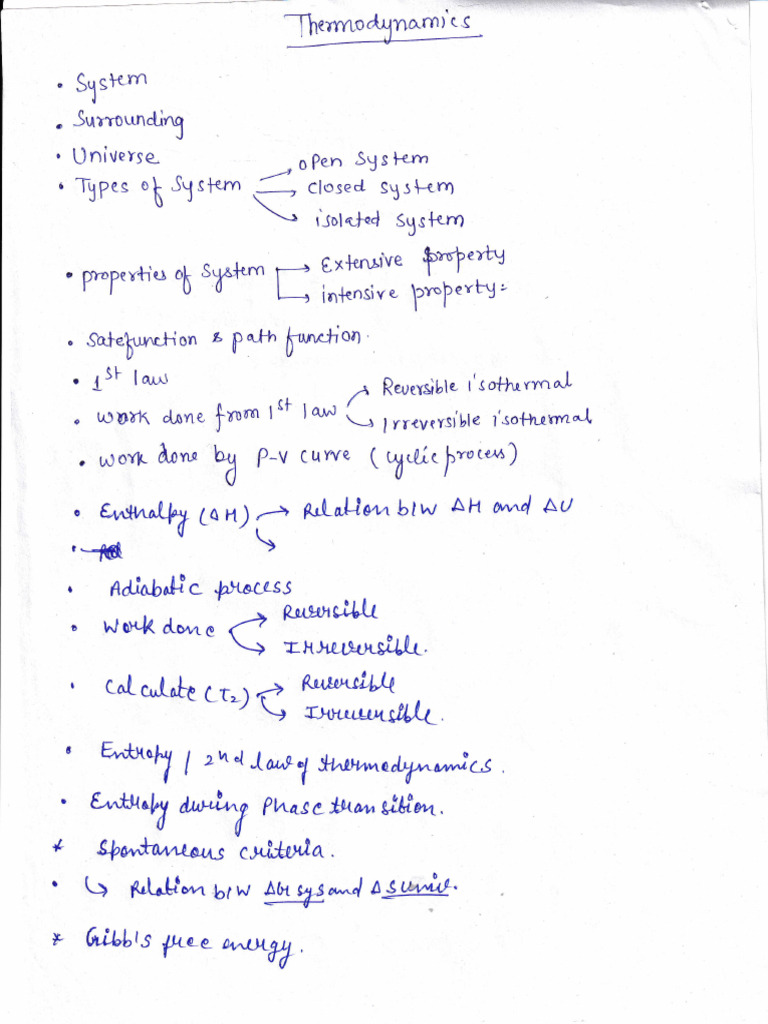 Thermodynamics
• System
• Surrounding
• Universe
• Types of System → open System
→ closed system
→ isolated system
• properties of System → Extensive property
→ intensive property:
• Satefunction & path function.
• 1st law
• work done from 1st law → Reversible isothermal
→ Irreversible isothermal
• work done by P-V curve (cyclic process)
• Enthalpy (ΔH) → Relation b/w ΔH and ΔU
→
•
• Adiabatic process
• Work done → Reversible
→ Irreversible.
• Calculate (T2) → Reversible
→ Irreversible.
• Entropy / 2nd law of thermodynamics.
• Entropy during Phase transition.
* Spontaneous criteria.
• ↳ Relation b/w ΔG sys and ΔS univ.
* Gibb's free energy.